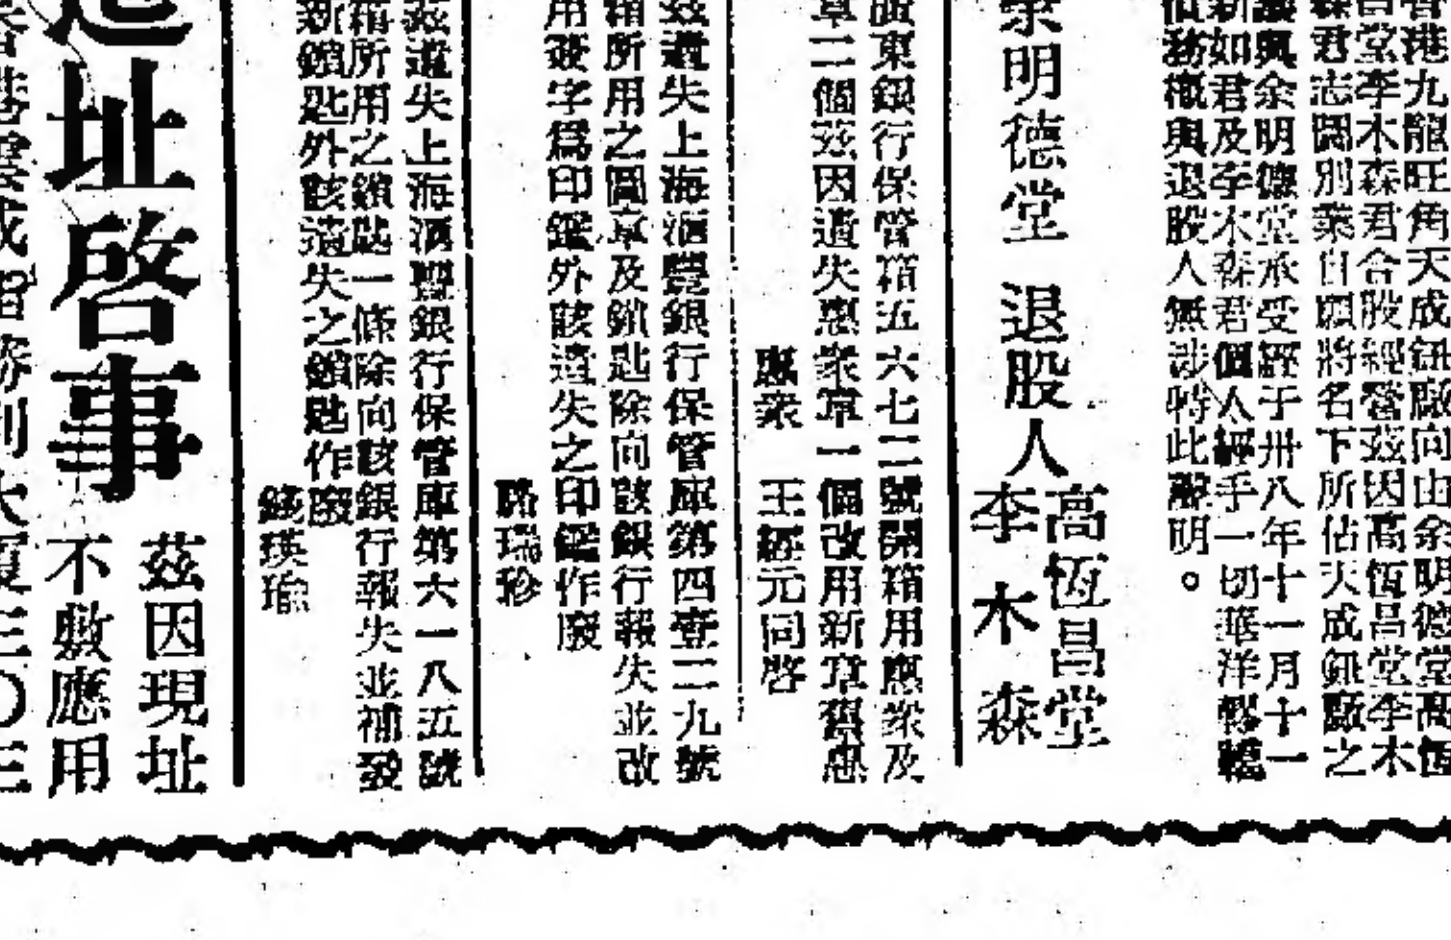 香港九龍旺角天成鈕廠向由余明德堂高恆
昌堂李木森君合股經營茲因高恆昌堂李木
森君志圖別業自願將名下所佔天成鈕廠之
讓與余明德堂承受經于卅八年十一月十一
新如君及李木森君個人經手一切華洋轇轕
債務概與退股人無涉特此聲明。
余明德堂 退股人 高恆昌堂
李木森
東銀行保管箱五六七二號開箱用惠衆及
章二個茲因遺失惠衆章一個改用新章舊惠
惠衆 王經元同啓
茲遺失上海滙豐銀行保管庫第四壹二九號
箱所用之圖章及鎖匙除向該銀行報失並改
用簽字爲印鑑外該遺失之印鑑作廢
駱瑞珍
茲遺失上海滙豐銀行保管庫第六一八五號
箱所用之鎖匙一條除向該銀行報失並補發
新鎖匙外該遺失之鎖匙作廢
錢瑛瑜
址啓事
茲因現址
不敷應用